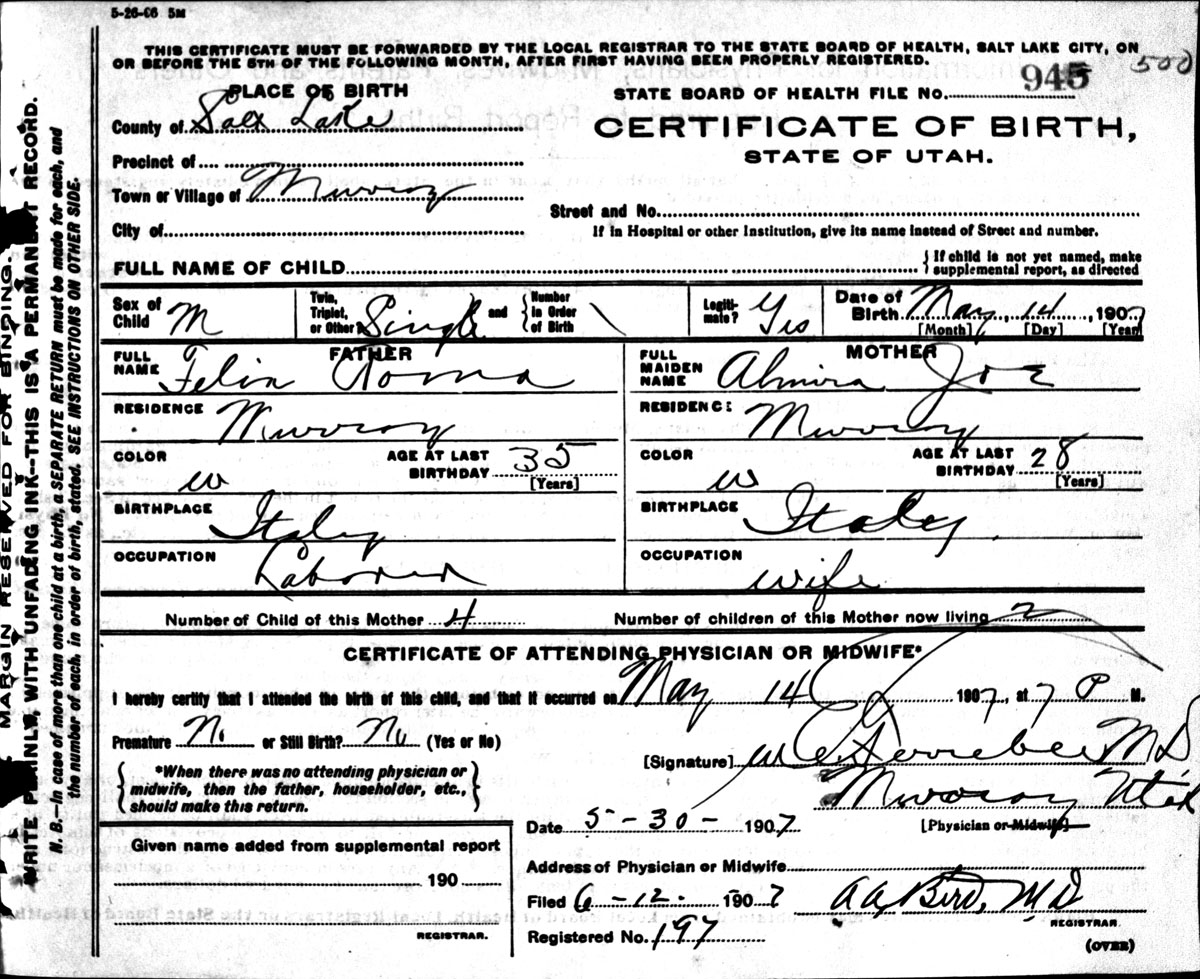 5-26-06 5M
THIS CERTIFICATE MUST BE FORWARDED BY THE LOCAL REGISTRAR TO THE STATE BOARD OF HEALTH, SALT LAKE CITY, ON
OR BEFORE THE 5TH OF THE FOLLOWING MONTH, AFTER FIRST HAVING BEEN PROPERLY REGISTERED.
500
PLACE OF BIRTH
STATE BOARD OF HEALTH FILE No. 945
County of Salt Lake
CERTIFICATE OF BIRTH,
STATE OF UTAH.
Precinct of
Town or Village of Murray
Street and No.
City of
If in Hospital or other Institution, give its name instead of Street and number.
FULL NAME OF CHILD
If child is not yet named, make
supplemental report, as directed
Sex of Child M
Twin, Triplet, or Other? Single and Number in Order of Birth \
Legitimate? Yes
Date of Birth May, 14, 1907
[Month] [Day] [Year]
FATHER
FULL NAME Felix Roma
RESIDENCE Murray
COLOR w AGE AT LAST BIRTHDAY 35
[Years]
BIRTHPLACE Italy
OCCUPATION Laborer
MOTHER
FULL MAIDEN NAME Almira Joe
RESIDENCE: Murray
COLOR w AGE AT LAST BIRTHDAY 28
[Years]
BIRTHPLACE Italey
OCCUPATION wife
Number of Child of this Mother 4 Number of children of this Mother now living 2
CERTIFICATE OF ATTENDING PHYSICIAN OR MIDWIFE*
I hereby certify that I attended the birth of this child, and that it occurred on May 14 1907, at 7 P M.
Premature No or Still Birth? No (Yes or No)
[Signature] W C Ferrebee MD
Murray Utah
[Physician or Midwife]
*When there was no attending physician or
midwife, then the father, householder, etc.,
should make this return.
Date 5-30- 1907
Given name added from supplemental report
190
REGISTRAR.
Address of Physician or Midwife
Filed 6-12. 1907 A A Bird, MD
REGISTRAR
Registered No. 197
(OVER)
MARGIN RESERVED FOR BINDING.
WRITE PLAINLY, WITH UNFADING INK--THIS IS A PERMANENT RECORD.
N. B.—In case of more than one child at a birth, a SEPARATE RETURN must be made for each, and
the number of each, in order of birth, stated. SEE INSTRUCTIONS ON OTHER SIDE.